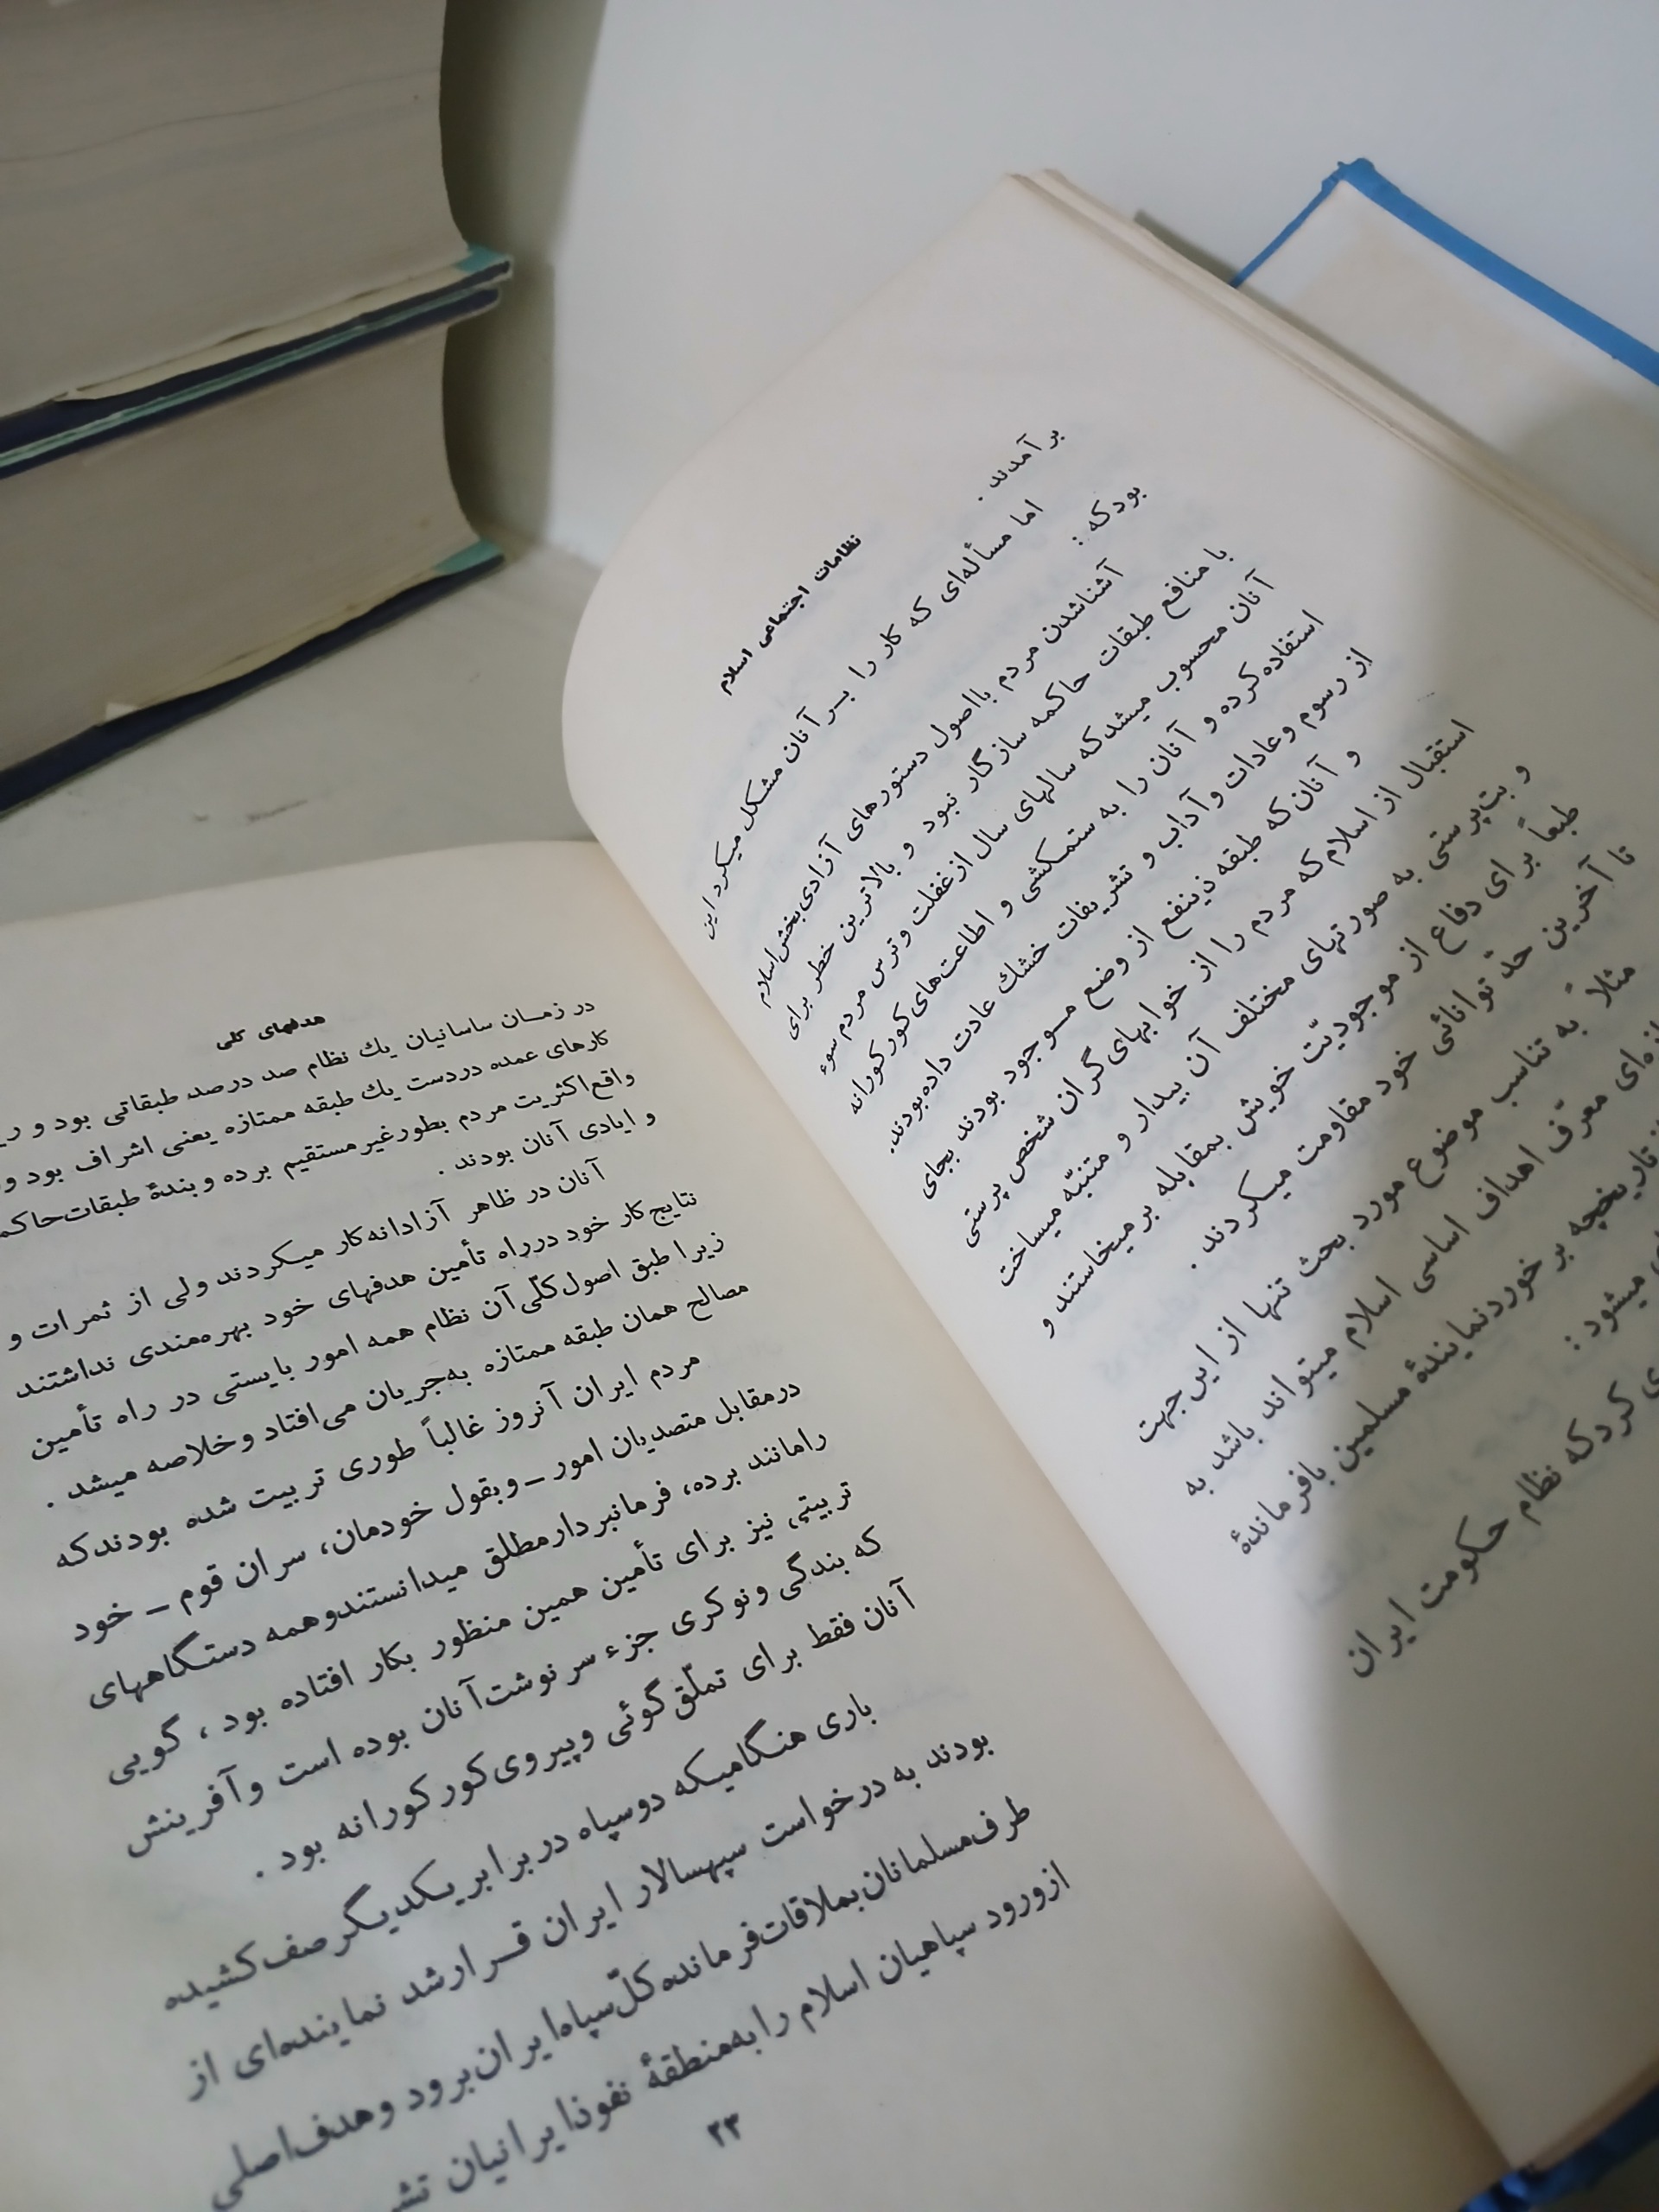 نظامات اجتماعی اسلام
بر آمدند .
اما مسأله‌ای که کار را بــر آنان مشکل میکرد این
بود که :
آشناشدن مردم بااصول دستورهای آزادی‌بخش اسلام
با منافع طبقات حاکمه سازگار نبود و بالاترین خطر برای
آنان محسوب میشد که سالهای سال از غفلت و ترس مردم سوء
استفاده کرده و آنان را به ستمکشی و اطاعت‌های کور کورانه
از رسوم و عادات و آداب و تشریفات خشك عادت داده بودند.
و آنان که طبقه ذینفع از وضع مــوجود بودند بجای
استقبال از اسلام که مردم را از خوابهای گران شخص پرستی
و بت‌پرستی به صورتهای مختلف آن بیدار و متنبّه میساخت
طبعاً برای دفاع از موجودیّت خویش بمقابله بر میخاستند و
تا آخرین حدّ توانائی خود مقاومت میکردند .
مثلاً به تناسب موضوع مورد بحث تنها از این جهت
معرّف اهداف اساسی اسلام میتواند باشد به
تاریخچه بر خورد نمایندۀ مسلمین بافرماندۀ
میشود :
کرد که نظام حکومت ایران
هدفهای کلی
در زمــان ساسانیان یك نظام صد درصد طبقاتی بود و
کارهای عمده دردست یك طبقه ممتازه یعنی اشراف بود و
واقع اکثریت مردم بطور غیر مستقیم برده و بندۀ طبقات
و ایادی آنان بودند .
آنان در ظاهر آزادانه کار میکردند ولی از ثمرات و
نتایج کار خود درراه تأمین هدفهای خود بهره‌مندی نداشتند
زیرا طبق اصول کلّی آن نظام همه امور بایستی در راه تأمین
مصالح همان طبقه ممتازه به‌جریان می‌افتاد و خلاصه میشد .
مردم ایران آنروز غالباً طوری تربیت شده بودند که
درمقابل متصدیان امور ـ و بقول خودمان، سران قوم ـ خود
رامانند برده، فرمانبردار مطلق میدانستند و همه دستگاههای
تربیتی نیز برای تأمین همین منظور بکار افتاده بود ، گویی
که بندگی و نوکری جزء سرنوشت آنان بوده است و آفرینش
آنان فقط برای تملّق گوئی و پیروی کور کورانه بود .
باری هنگامیکه دو سپاه در برابر یکدیگر صف کشیده
بودند به درخواست سپهسالار ایران قــرار شد نماینده‌ای از
طرف مسلمانان بملاقات فرمانده کلّ سپاه ایران برود و هدف اصلی
ازورود سپاهیان اسلام را به منطقۀ نفوذ ایرانیان
۲۳